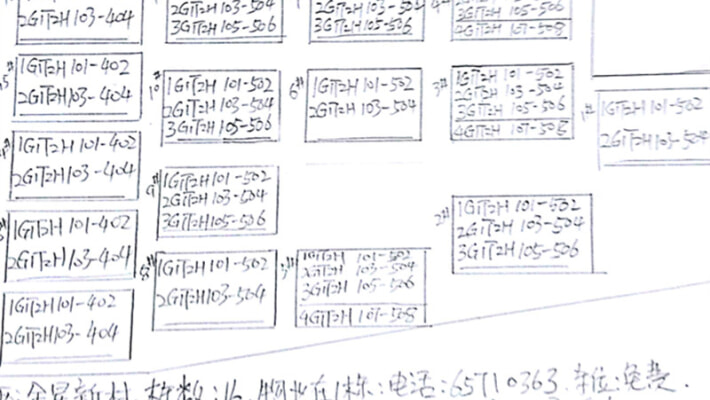 2GT2H 103-404
2GT2H 103-504
3GT2H 105-506
2GT2H 103-504
3GT2H 105-506
3GT2H 105-506
4GT2H 107-508
15#
1GT2H 101-402
2GT2H 103-404
10#
1GT2H 101-502
2GT2H 103-504
3GT2H 105-506
6#
1GT2H 101-502
2GT2H 103-504
3#
1GT2H 101-502
2GT2H 103-504
3GT2H 105-506
4GT2H 107-508
1#
1GT2H 101-502
2GT2H 103-504
1GT2H 101-402
2GT2H 103-404
9#
1GT2H 101-502
2GT2H 103-504
3GT2H 105-506
2#
1GT2H 101-502
2GT2H 103-504
3GT2H 105-506
1GT2H 101-402
2GT2H 103-404
8#
1GT2H 101-502
2GT2H 103-504
1GT2H 101-502
2GT2H 103-504
3GT2H 105-506
4GT2H 107-508
1GT2H 101-402
2GT2H 103-404
金昇新村.栋数:16.物业在1栋:电话:65710363.车位:免费.